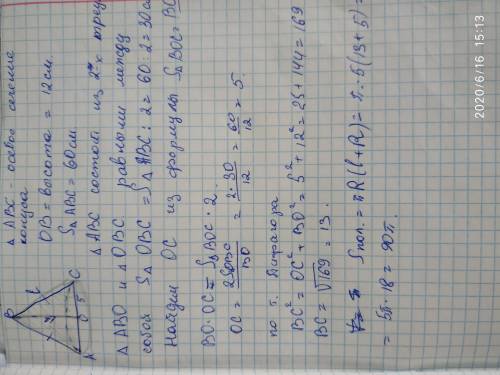 B
l
A
O
5
C
△ ABC - осевое сечение
конуса
OB = высота = 12 см.
S△ABC = 60 см
△ABC состоит из 2ух
△ABO и △OBC равными между
собой S△ OBC = S△ ABC : 2 = 60 : 2 = 30 см
Найдём OC из формулы S△BOC =
BO · OC = S△BOC · 2
OC = 2S△BOC / BO = 2 · 30 / 12 = 60 / 12 = 5
по т. Пифагора
BC² = OC² + BO² = 5² + 12² = 25 + 144 = 169
BC = √169 = 13.
Sпол. = πR(l+R) = π · 5(13+5) =
= 5π · 18 = 90π.
2020/6/16 15:13